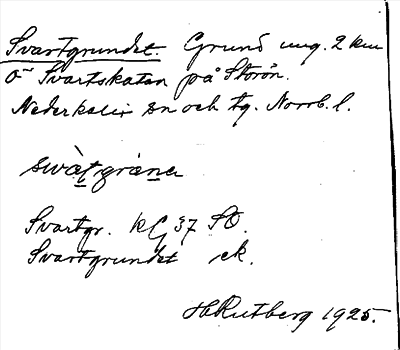 Svartgrundet. Grund ung. 2 km
O~ Svartskatan på Storön.
Nederkalix sn och tg. Norrb. l.
swàtgràna
Svartgr. KG 37 SO.
Svartgrundet ek.
H Rutberg 1925.